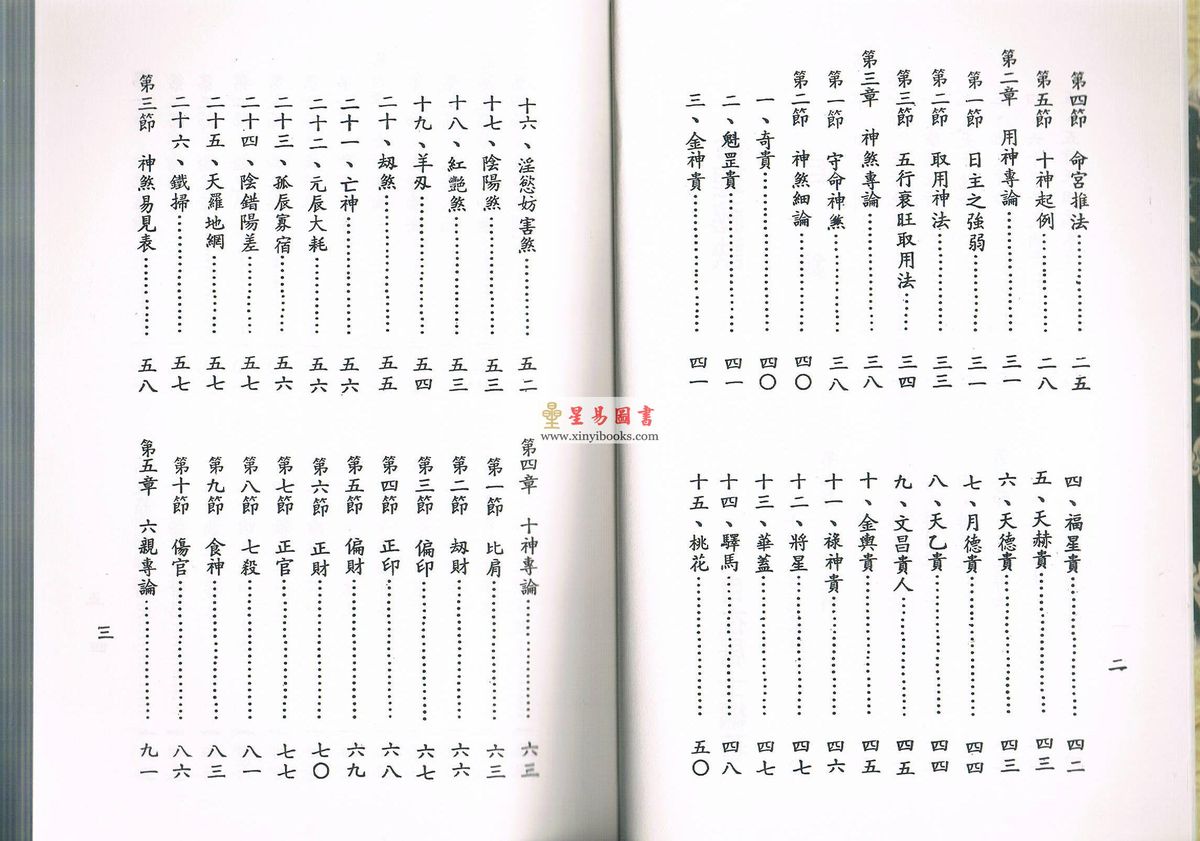 第四節　命宮推法…………二五
第五節　十神起例…………二八
第二章　用神專論…………三一
第一節　日主之強弱…………三一
第二節　取用神法…………三三
第三節　五行衰旺取用法……三四
第三章　神煞專論…………三八
第一節　守命神煞…………三八
第二節　神煞細論…………四〇
一、奇貴…………四〇
二、魁罡貴…………四一
三、金神貴…………四一
四、福星貴…………四二
五、天赫貴…………四三
六、天德貴…………四三
七、月德貴…………四四
八、天乙貴…………四四
九、文昌貴人…………四五
十、金輿貴…………四五
十一、祿神貴…………四六
十二、將星…………四七
十三、華蓋…………四七
十四、驛馬…………四八
十五、桃花…………五〇
二
十六、淫慾妨害煞…………五二
十七、陰陽煞…………五三
十八、紅艷煞…………五三
十九、羊刃…………五四
二十、刼煞…………五五
二十一、亡神…………五六
二十二、元辰大耗…………五六
二十三、孤辰寡宿…………五六
二十四、陰錯陽差…………五七
二十五、天羅地網…………五七
二十六、鐵掃…………五七
第三節　神煞易見表…………五八
第四章　十神專論…………六三
第一節　比肩…………六三
第二節　刼財…………六六
第三節　偏印…………六七
第四節　正印…………六八
第五節　偏財…………六九
第六節　正財…………七〇
第七節　正官…………七七
第八節　七殺…………八一
第九節　食神…………八三
第十節　傷官…………八六
第五章　六親專論…………九一
三
星易圖書
www.xinyibooks.com